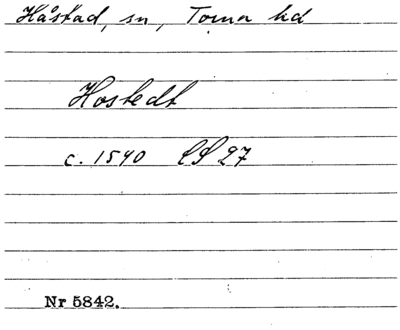 Håstad, sn, Torna hd
Hostedt
c. 1540 LS 27
Nr 5842.